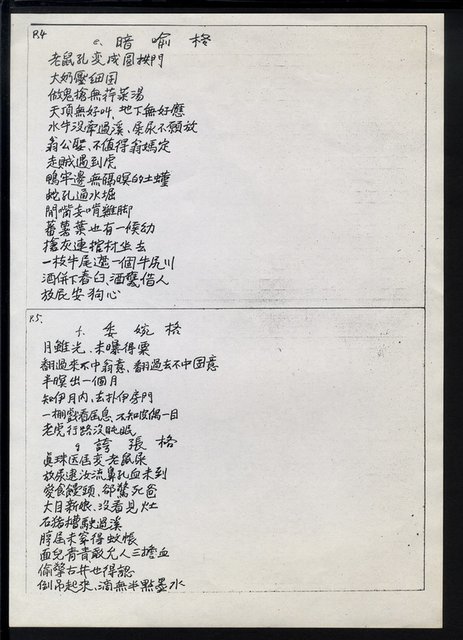 P.4
e. 暗喻格
老鼠孔變成圓拱門
大奶壓細囝
做鬼搶無菜湯
天頂無好叫、地下無好應
水牛沒牽過溪、屎尿不願放
翁公娶、不值得翁媽定
走賊遇到虎
鴨牢邊無隔暝的土蚓
蛇孔通水堀
開嘴妄啃雞腳
蕃薯葉也有一候幼
搶灰連棺材坐去
一枝牛尾遮一個牛尻川
酒併下舂臼、酒甕借人
放屁安狗心
P.5.
f. 委婉格
月雖光、未曝得粟
翻過來不中翁意、翻過去不中囝意
半暝出一個月
知伊月內、去扑伊房門
一棚戲看屆息、不知皮偶一目
老虎行路沒盹眠
g 誇張格
真珠囥屆變老鼠屎
放尿遘汝流鼻孔血未到
愛食饅頭、卻驚死爸
大目新娘、沒看見灶
石豬槽駛過溪
脖屆未穿得蚊帳
面兒青青敢允人三擔血
偷掔古井也得認
倒吊起來、滴無半點墨水